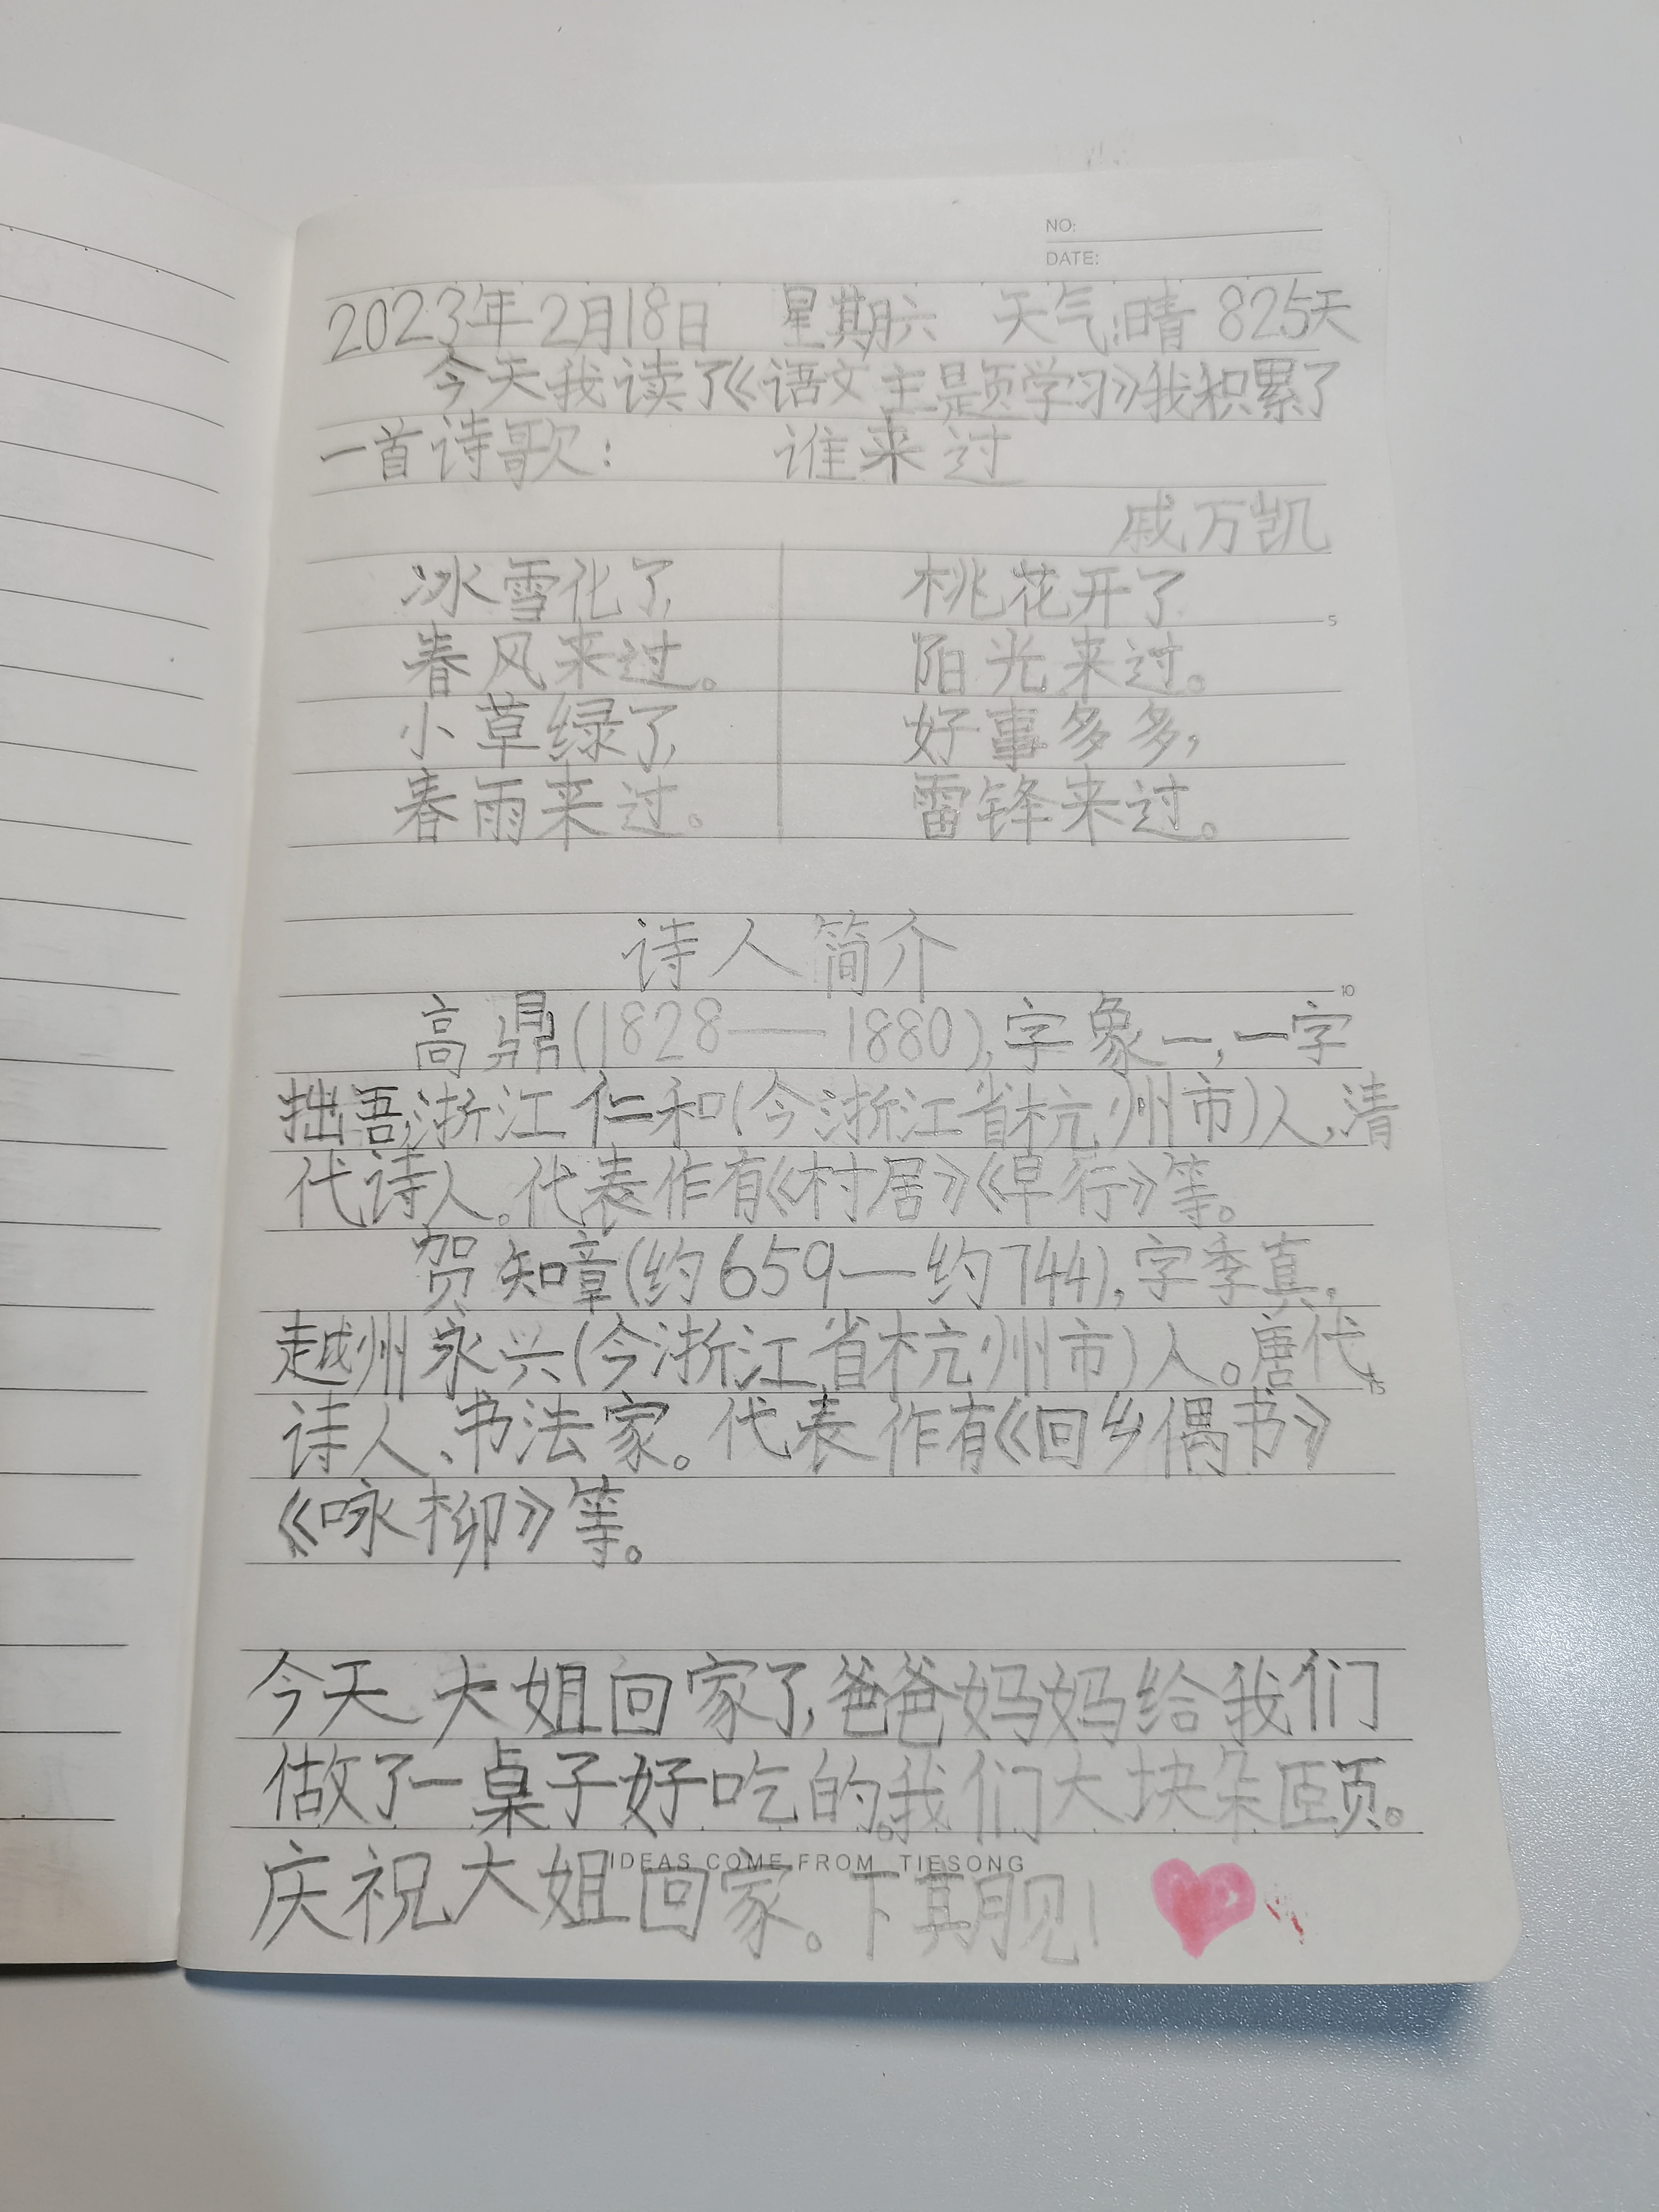 NO:
DATE:
2023年2月18日 星期六 天气:晴 825天
今天我读了《语文主题学习》我积累了
一首诗歌: 谁来过
戚万凯
冰雪化了,
春风来过。
小草绿了,
春雨来过。
桃花开了
阳光来过。
好事多多,
雷锋来过。
诗人简介
高鼎(1828——1880),字象一,一字
拙吾,浙江仁和(今浙江省杭州市)人,清
代诗人。代表作有《村居》《早行》等。
贺知章(约659—约744),字季真,
越州永兴(今浙江省杭州市)人。唐代
诗人、书法家。代表作有《回乡偶书》
《咏柳》等。
今天大姐回家了,爸爸妈妈给我们
做了一桌子好吃的。我们大块朵颐。
庆祝大姐回家。下期见!
IDEAS COME FROM TIESONG
5
10
15